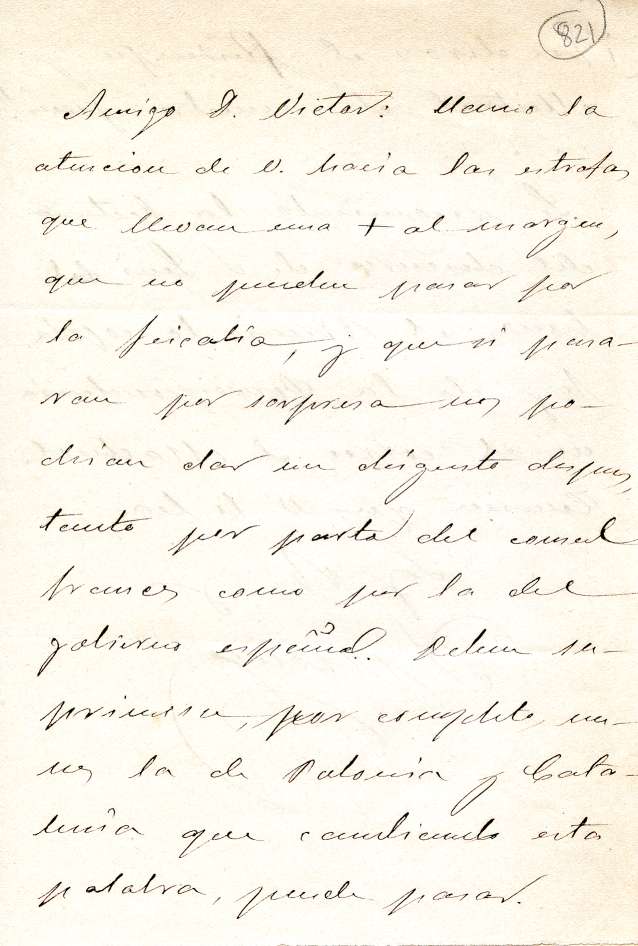 821
Amigo D. Victor: llamo la
atencion de V. hacia las estrofas
que llevan una + al margen,
que no pueden pasar por
la fiscalía, y que si pasa-
ran por sorpresa nos po-
drian dar un disgusto despues,
tanto por parte del consul
frances como por la del
gobierno español. Deben su-
primirse, por completo, me-
nos la de Polonia y Cata-
luña que cambiando esta
palabra, puede pasar.